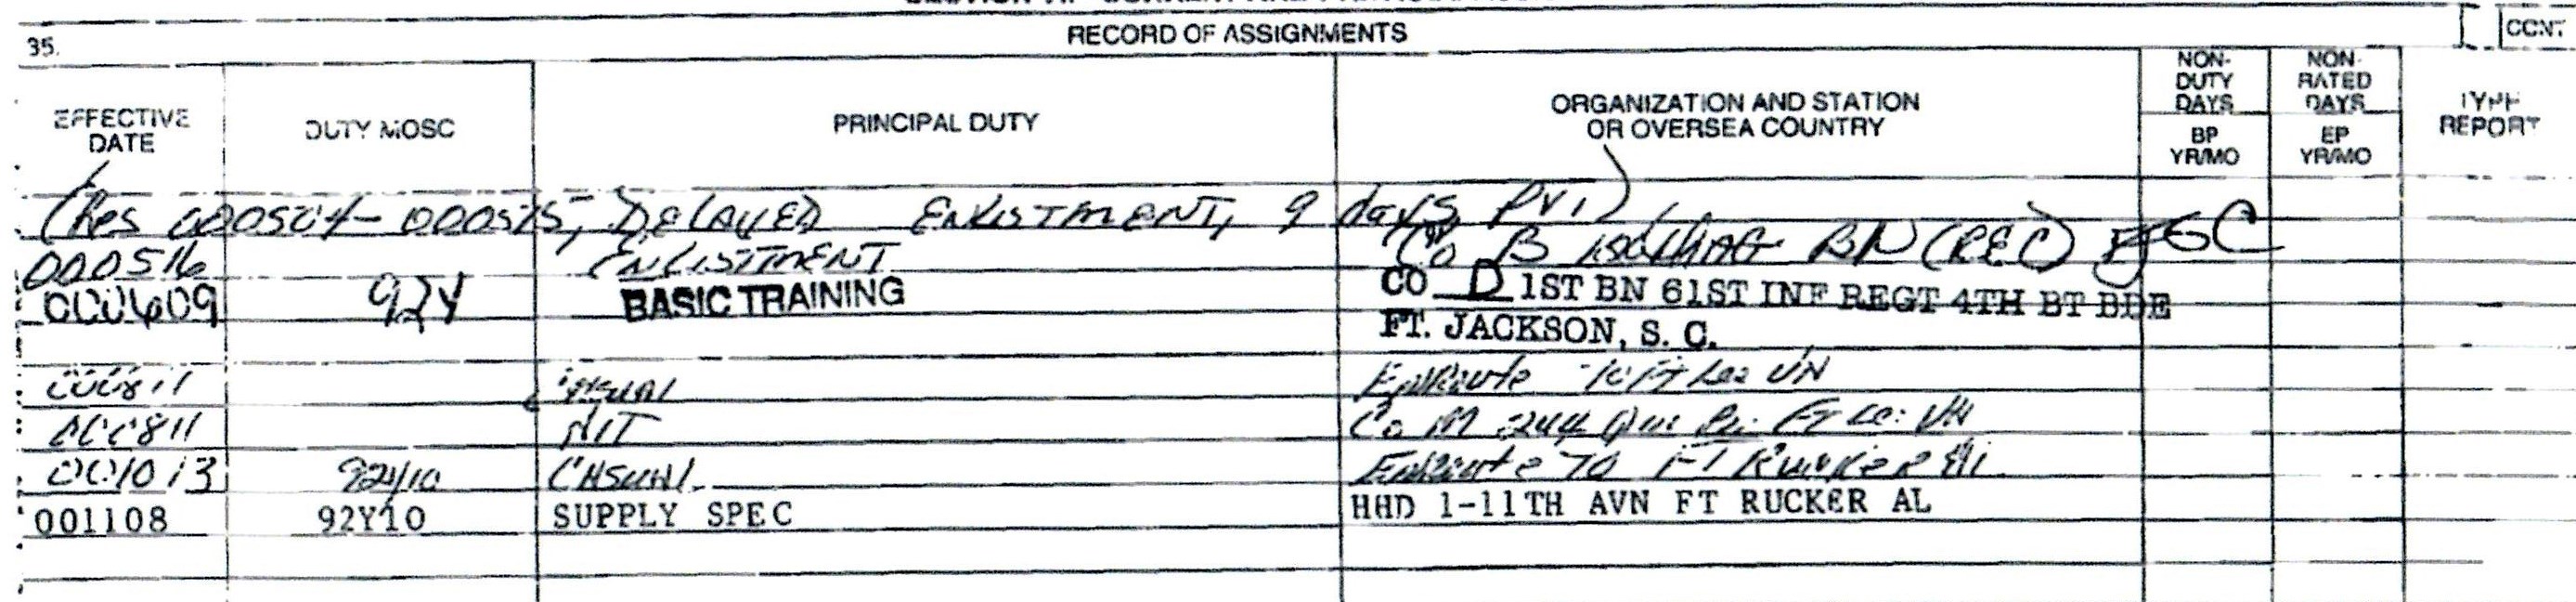 35.
RECORD OF ASSIGNMENTS
CONT
EFFECTIVE DATE
DUTY MOSC
PRINCIPAL DUTY
ORGANIZATION AND STATION OR OVERSEA COUNTRY
NON-DUTY DAYS
BP YR/MO
NON-RATED DAYS
EP YR/MO
TYPE REPORT
DELAYED ENLISTMENT, 9 days, PV1)
000516 ENLISTMENT Co B BN (REC)
000609 92Y BASIC TRAINING CO D 1ST BN 61ST INF REGT 4TH BT BDE
FT. JACKSON, S. C.
000811 Casual EnRoute to Ft Lee
000811 AIT Co M 244 QM Bn Ft Lee
001013 92Y10 CASUAL EnRoute TO FT RUCKER
001108 92Y10 SUPPLY SPEC HHD 1-11TH AVN FT RUCKER AL